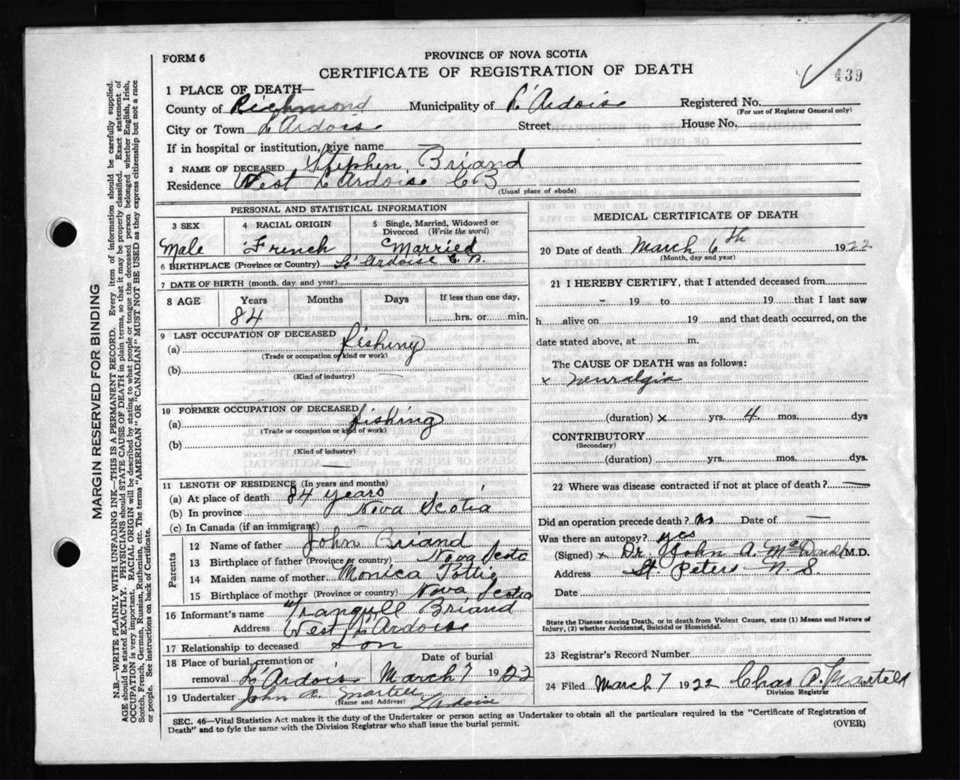 FORM 6
PROVINCE OF NOVA SCOTIA
CERTIFICATE OF REGISTRATION OF DEATH
439
1 PLACE OF DEATH—
County of Richmond Municipality of L'Ardois Registered No.
(For use of Registrar General only)
City or Town L'Ardois Street House No.
If in hospital or institution, give name —
2 NAME OF DECEASED Stephen Briand
Residence West L'Ardoise C.B
(Usual place of abode)
PERSONAL AND STATISTICAL INFORMATION
3 SEX 4 RACIAL ORIGIN 5 Single, Married, Widowed or Divorced (Write the word)
Male French Married
6 BIRTHPLACE (Province or Country) L'Ardoise C B.
7 DATE OF BIRTH (month, day and year)
8 AGE Years Months Days If less than one day,
84 hrs. or min.
9 LAST OCCUPATION OF DECEASED
(a) fishing
(Trade or occupation or kind or work)
(b) —
(Kind of industry)
10 FORMER OCCUPATION OF DECEASED
(a) fishing
(Trade or occupation or kind of work)
(b)
(Kind of industry)
—
11 LENGTH OF RESIDENCE (In years and months)
(a) At place of death 84 years
(b) In province Nova Scotia
(c) In Canada (if an immigrant)
Parents
12 Name of father John Briand
13 Birthplace of father (Province or country) Nova Scotia
14 Maiden name of mother Monica Pottie
15 Birthplace of mother (Province or country) Nova Scotia
16 Informant's name Briand
Address West L'Ardoise
17 Relationship to deceased Son
18 Place of burial, cremation or removal Date of burial
L'Ardois March 7 1922
19 Undertaker John A. Martell L'Ardoise
(Name and Address)
MEDICAL CERTIFICATE OF DEATH
20 Date of death March 6th 1922
(Month, day and year)
21 I HEREBY CERTIFY, that I attended deceased from
– 19 to 19 that I last saw
h alive on 19 and that death occurred, on the
date stated above, at m.
The CAUSE OF DEATH was as follows:
x neuralgia
(duration) x yrs. 4 mos. dys
CONTRIBUTORY
(Secondary)
(duration) yrs. mos. dys
22 Where was disease contracted if not at place of death? —
Did an operation precede death? no Date of —
Was there an autopsy? yes
(Signed) x Dr. John A. McDonald M.D.
Address St. Peters N.S.
Date
State the Disease causing Death, or in death from Violent Causes, state (1) Means and Nature of
Injury, (2) whether Accidental, Suicidal or Homicidal.
23 Registrar's Record Number
24 Filed March 7 1922 Chas A. Martell
Division Registrar
SEC. 46—Vital Statistics Act makes it the duty of the Undertaker or person acting as Undertaker to obtain all the particulars required in the "Certificate of Registration of
Death" and to fyle the same with the Division Registrar who shall issue the burial permit.
(OVER)
MARGIN RESERVED FOR BINDING
N.B.—WRITE PLAINLY WITH UNFADING INK—THIS IS A PERMANENT RECORD. Every item of information should be carefully supplied.
AGE should be stated EXACTLY. PHYSICIANS should STATE CAUSE OF DEATH in plain terms, so that it may be properly classified. Exact statement of
OCCUPATION is very important. RACIAL ORIGIN will be described by stating to what people or tongue the deceased person belonged whether English, Irish,
Scotch, French, German, Russian, Ruthenian, etc. The terms "AMERICAN" or "CANADIAN" MUST NOT BE USED as they express citizenship but not a race
or people. See instructions on back of Certificate.